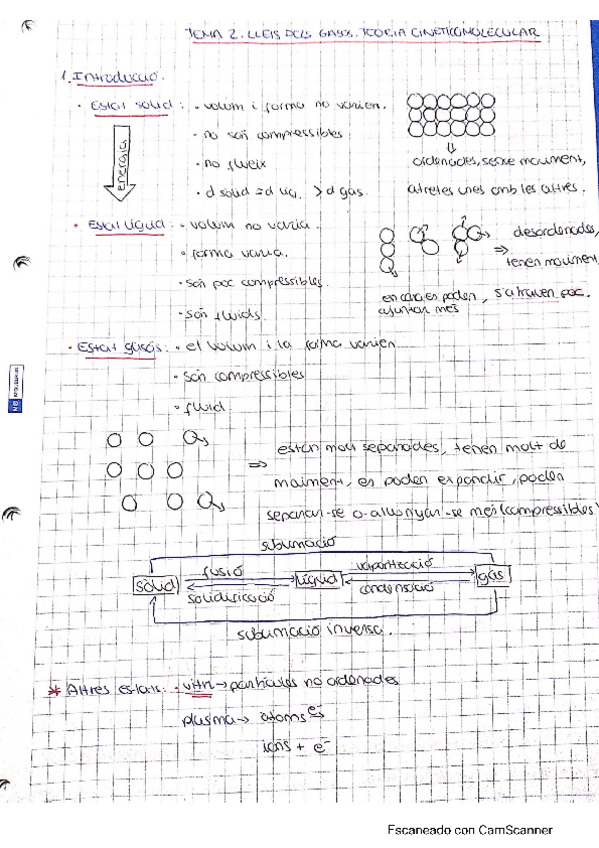 TEMA 2. LLEIS DELS GASOS. TEORIA CINETICOMOLECULAR
1. Introducció.
· Estat sòlid: · volum i forma no varien.
· no són compressibles
· no flueix
· d sòlid ≥ d líq. > d gas.
energia
ordenades, sense moviment,
atretes unes amb les altres.
· Estat líquid: · volum no varia.
· forma varia.
· són poc compressibles.
· són fluids.
desordenades,
⇒ tenen moviment
encara es poden, s'atrauen poc.
ajuntar més
· Estat gasós: · el volum i la forma varien
· són compressibles
· fluid
⇒ estan molt separades, tenen molt de
moviment, es poden expandir, poden
separar-se o allunyar-se més (compressibles)
sublimació
fusió vaporització
sòlid líquid gas
solidificació condensació
sublimació inversa.
* Altres estats: · vitri → partícules no ordenades
plasma → àtoms e⁻s
ions + e⁻
Escaneado con CamScanner